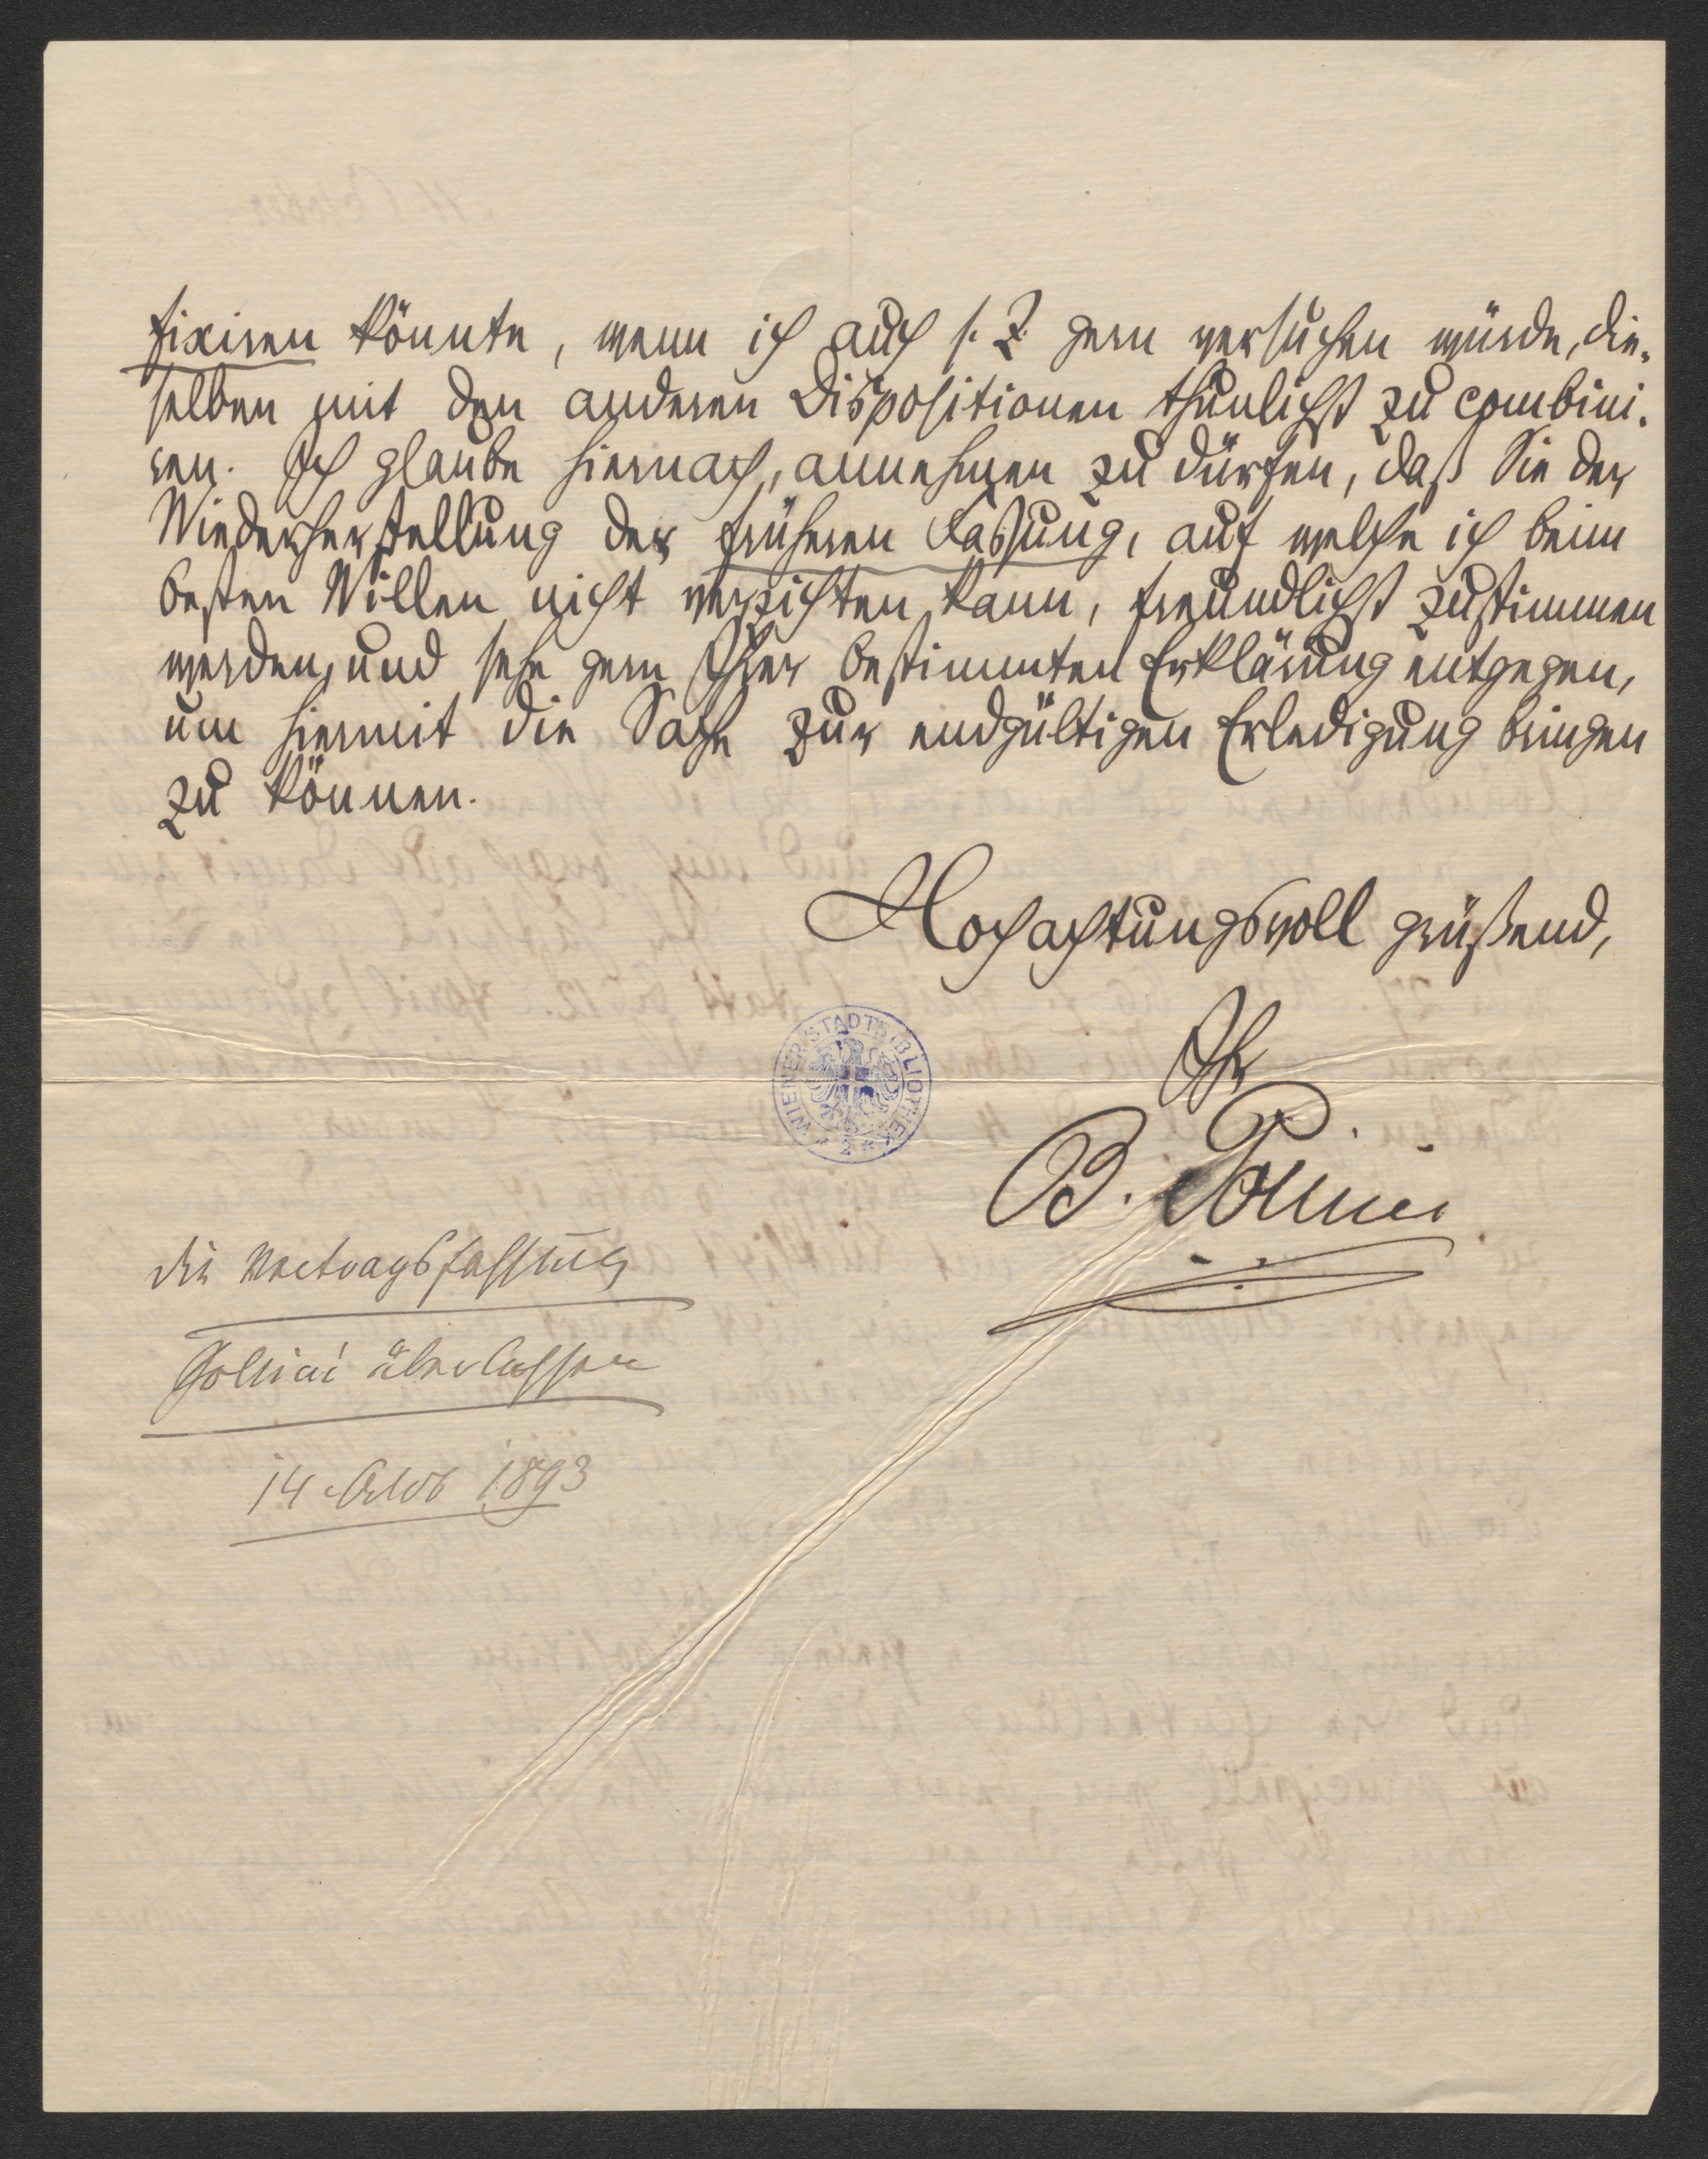 fixiren könnte, wenn ich auch s. Z. gern versuchen würde, die-
selben mit den anderen Dispositionen thunlichst zu combini-
ren. Ich glaube hiernach, annehmen zu dürfen, daß Sie der
Wiederherstellung der früheren Fassung, auf welche ich beim
besten Willen nicht verzichten kann, freundlichst zustimmen
werden, und sehe gern Ihrer bestimmten Erklärung entgegen,
um hiermit die Sache zur endgültigen Erledigung bringen
zu können.
Hochachtungsvoll grüßend,
Ihr
B. Pollini
WIENER STADTBIBLIOTHEK
die Vertragsfassung
Pollini überlassen
14 Octob 1893